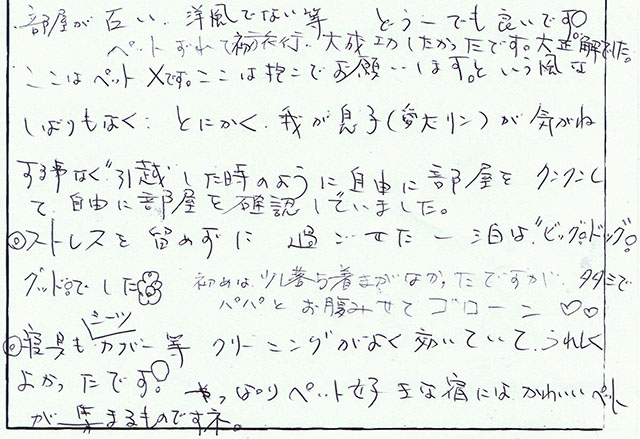 部屋が古い、洋風でない等 どうーでも良いです。
ペットずれて初旅行、大成功したかったです。大正解でした。
ここはペット×です。ここは抱っこでお願いします。という風な
しばりもなく、とにかく、我が息子(愛犬リン)が気がね
する事なく"引越しした時のように自由に部屋をクンクンし
て、自由に部屋を確認していました。
◎ストレスを留めずに 過ごせた一泊は、"ビッグ!ドッグ!
グッド!でした
初めは少し落ち着きがなかったですが、タタミで
パパとお腹みせてゴローン♡♡
シーツ
◎寝具もカバー等 クリーニングがよく効いていて、うれしく
よかったです。やっぱりペット好きな宿にはかわいいペット
が集まるものですネ。